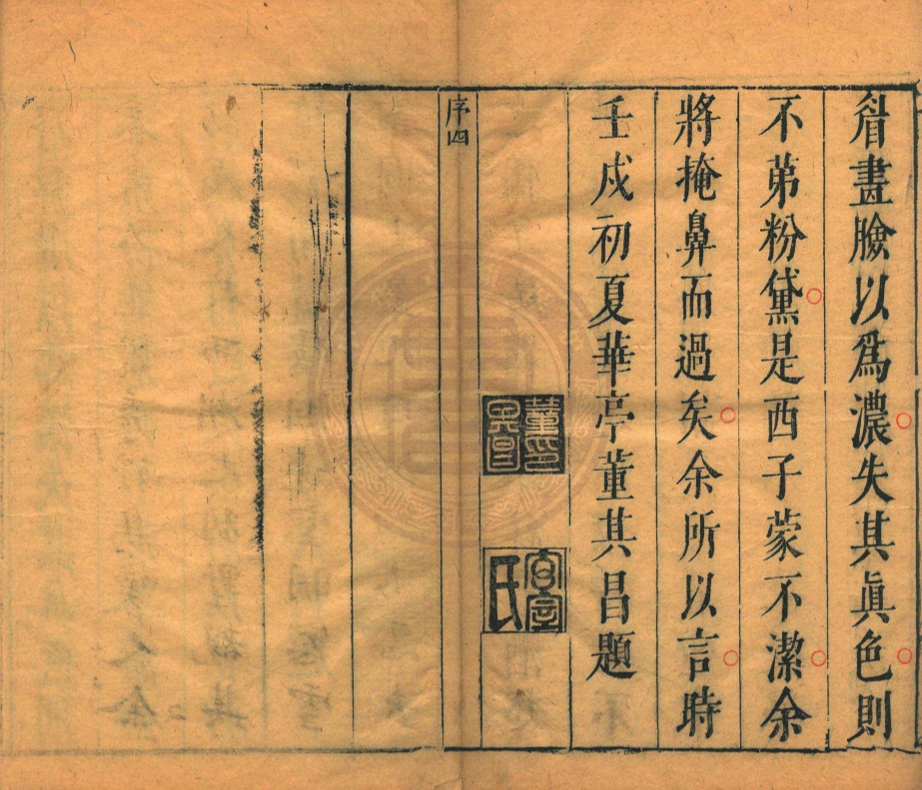 睂畫臉以爲濃失其眞色則
不弟粉黛是西子蒙不潔余
將掩鼻而過矣余所以言時
壬戍初夏華亭董其昌題
董印其昌
序四